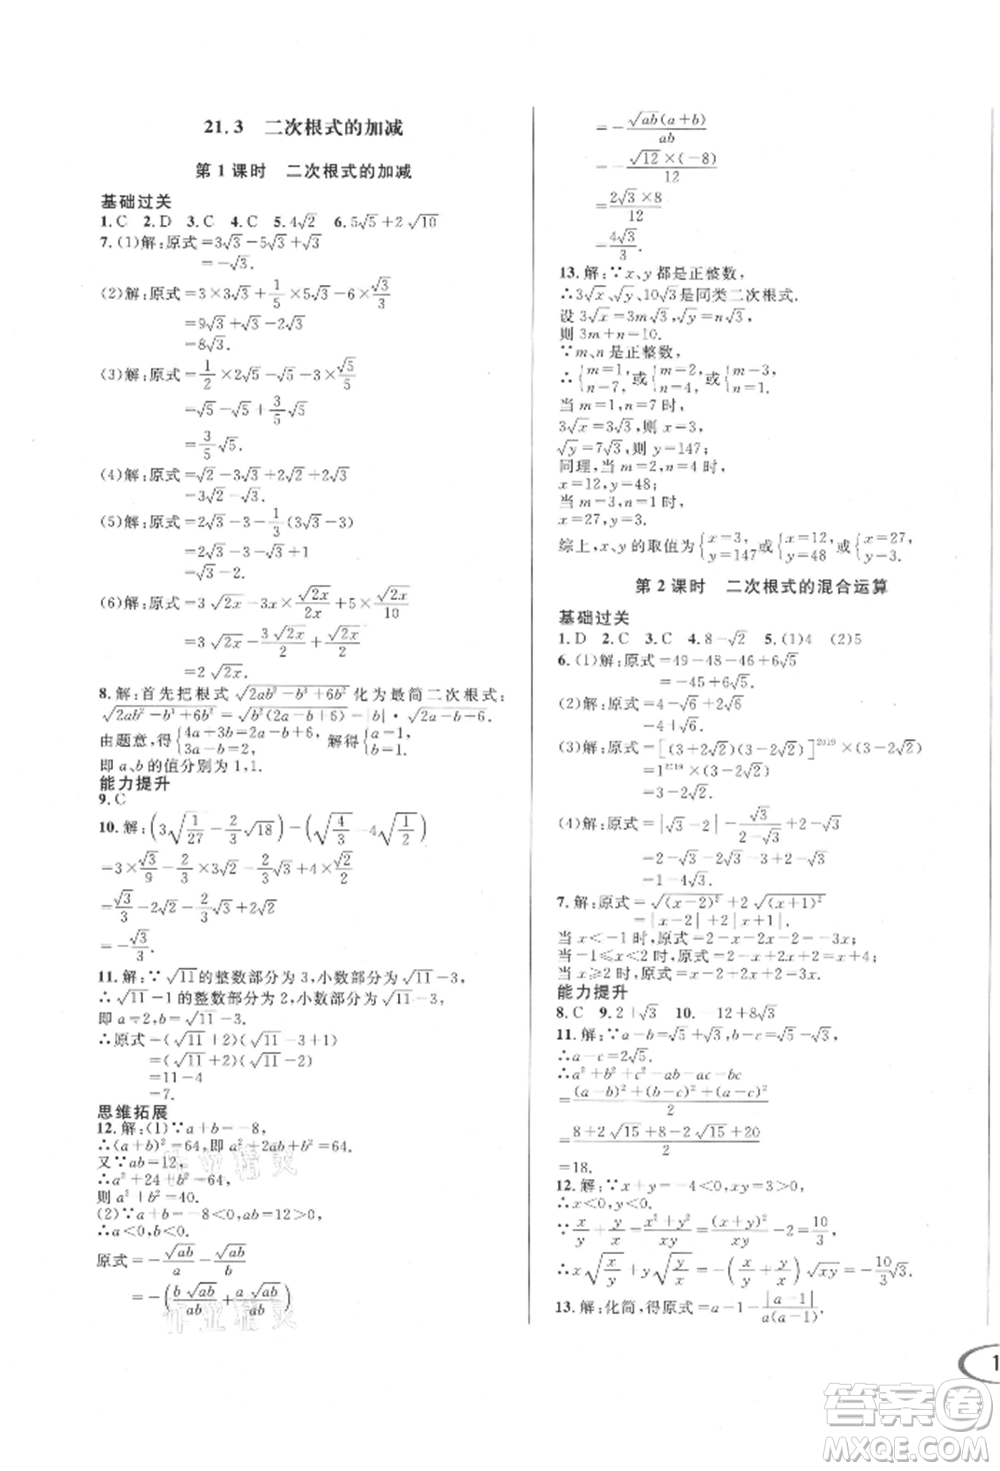 21.3 二次根式的加减
第1课时 二次根式的加减
基础过关
1.C 2.D 3.C 4.C 5.4√2 6.5√5+2√10
7.(1)解:原式=3√3-5√3+√3
=-√3.
(2)解:原式=3×3√3+1/5×5√3-6×√3/3
=9√3+√3-2√3
=8√3.
(3)解:原式=1/2×2√5-√5+3×√5/5
=√5-√5+3/5√5
=3/5√5.
(4)解:原式=√2-3√2+3√2+2√2
=3√2.
(5)解:原式=2√3-3-1/3(3√3-3)
=2√3-3-√3+1
=√3-2.
(6)解:原式=3√2x-3×√2x/2+5×√2x/10
=3√2x-3√2x/2+√2x/2
=2√2x.
8.解:首先把根式√(2ab²-b³+6b²)化为最简二次根式:
√(2ab²-b³+6b²)=√(b²(2a-b+6))=|b|·√(2a-b+6).
由题意,得{4a+3b=2a-b+6, 3a-b=2, 解得{a=1, b=1.
即a、b的值分别为1,1.
能力提升
9.C
10.解:(3√(1/27)-2/3√18)-(√(4/3)-4√(1/2))
=3×√3/9-2/3×3√2-2/3×√3+4×√2/2
=√3/3-2√2-2√3/3+2√2
=-√3/3.
11.解:∵√11的整数部分为3,小数部分为√11-3,
∴√11-1的整数部分为2,小数部分为√11-3,
即a=2,b=√11-3.
∴原式=(√11+2)(√11-3+1)
=(√11+2)(√11-2)
=11-4
=7.
思维拓展
12.解:(1)∵a+b=-8,
∴(a+b)²=64,即a²+2ab+b²=64.
又∵ab=12,
∴a²+24+b²=64,
则a²+b²=40.
(2)∵a+b=-8<0,ab=12>0,
∴a<0,b<0.
原式=-√ab/a-√ab/b
=-(b√ab/ab+a√ab/ab)
=-√ab(a+b)/ab
=-√12×(-8)/12
=2√3×8/12
=4√3/3.
13.解:∵x、y都是正整数,
∴3√x、√y、10√3是同类二次根式.
设3√x=3m√3,√y=n√3,
则3m+n=10.
∵m、n是正整数,
∴{m=1, n=7,或{m=2, n=4,或{m=3, n=1.
当m=1,n=7时,
3√x=3√3,则x=3,
√y=7√3,则y=147;
同理,当m=2,n=4时,
x=12,y=48;
当m=3,n=1时,
x=27,y=3.
综上,x、y的取值为{x=3, y=147或{x=12, y=48或{x=27, y=3.
第2课时 二次根式的混合运算
基础过关
1.D 2.C 3.C 4.8-√2 5.(1)4 (2)5
6.(1)解:原式=49-48-46+6√5
=-45+6√5.
(2)解:原式=4-√6+2√6
=4+√6.
(3)解:原式=[(3+2√2)(3-2√2)]²⁰¹⁹×(3-2√2)
=1²⁰¹⁹×(3-2√2)
=3-2√2.
(4)解:原式=|√3-2|-√3/(2√3-√3)
=2-√3-1
=1-√3.
7.解:原式=√(x-2)²+2√(x+1)²
=|x-2|+2|x+1|.
当x<-1时,原式=-3x;
当-1≤x<2时,原式=x+4;
当x≥2时,原式=3x.
能力提升
8.C 9.2+√3 10.-12+8√3
11.解:∵a-b=√5+√3,b-c=√5-√3,
∴a-c=2√5.
∴a²+b²+c²-ab-ac-bc
=((a-b)²+(b-c)²+(a-c)²)/2
=(8+2√15+8-2√15+20)/2
=18.
12.解:∵x+y=-4<0,xy=3>0,
∴x<0,y<0.
∵x/y+y/x=(x²+y²)/xy=(x+y)²/xy-2=10/3,
∴x√(y/x)+y√(x/y)=-(x/y+y/x)√xy=-10/3√3.
13.解:化简,得原式=a-1-|a-1|/a(a-1).
1
答案圈
MXQE.COM
作业精灵
作业精灵